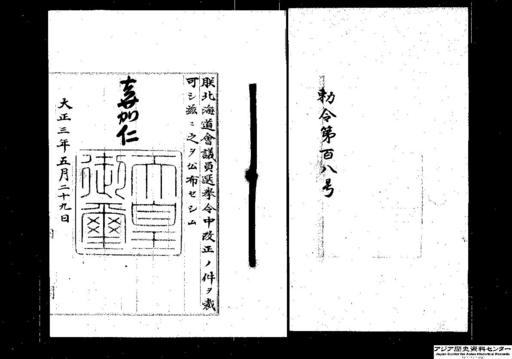 勅令第百八号
朕北海道會議員選挙令中改正ノ件ヲ裁
可シ茲ニ之ヲ公布セシム
嘉仁
天皇
御璽
大正三年五月二十九日
アジア歴史資料センター
Japan Center for Asian Historical Records